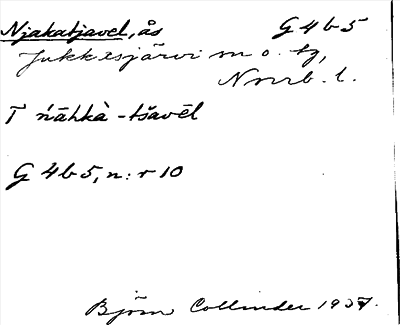 Njakatjavel, ås G 4 b 5
Jukkasjärvi m o. tg,
Norrb. l.
T ńāhkà -tšavēl
G 4 b 5, n:r 10
Björn Collinder 1937.